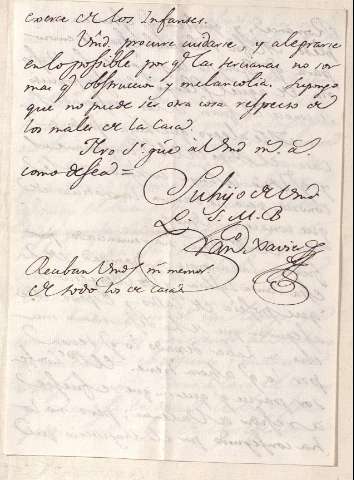 exerce de los Infantes.
Vmd. procure cuidarse, y alegrarse
en lo posible por q.e las tercianas no son
mas q.e obstruccion y melancolia. Supongo
que no puede ser otra cosa respecto de
los males de la Casa.
Ntro S.r gue. à Vmd m.s a.s
como desea =
Su hijo de Vmd
L. S. M. B
Fran.co Xavier
Reciban Vmds m. memor.
de todos los de casa